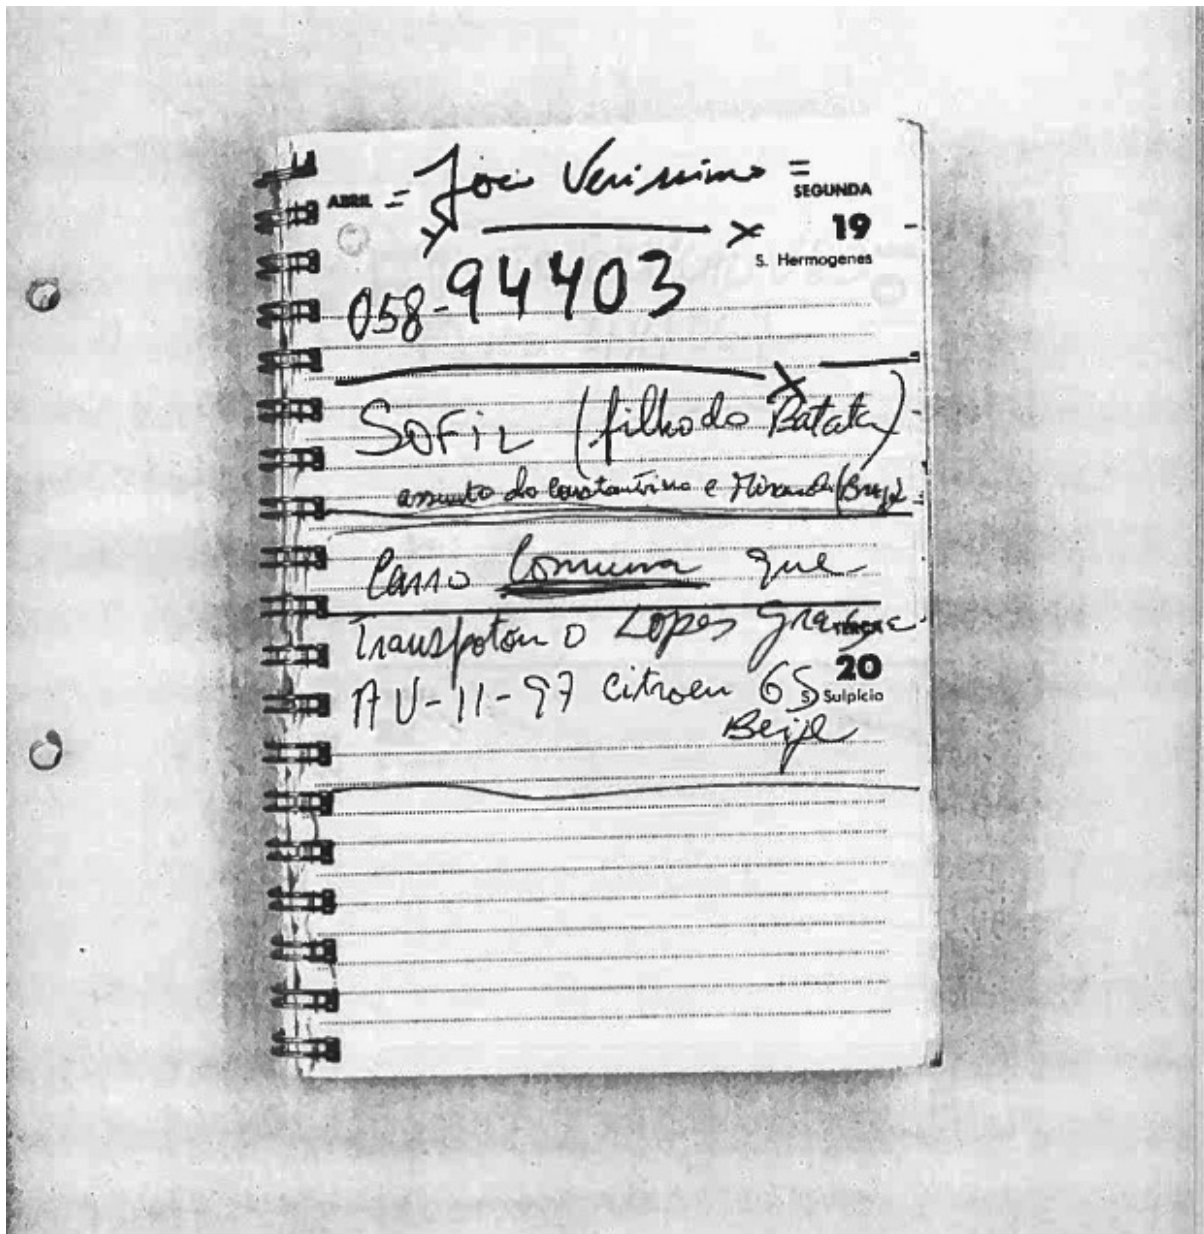 ABRIL = João Verissimo = SEGUNDA
19
S. Hermogenes
058-94403
SOFIL (filho do Batata)
assunto do Constantino e Miranda (Breijo
Carro Comuna que
Transpotou o Lopes Graça
TERÇA
20
S. Sulpício
AU-11-97 Citroen GS
Beije